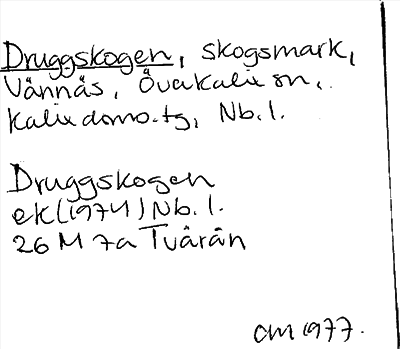 Druggskogen, skogsmark,
Vännäs, Överkalix sn,
Kalix doms.tg, Nb.l.
Druggskogen
ek (1974) Nb.l.
26 M 7a Tvärån
OM 1977.